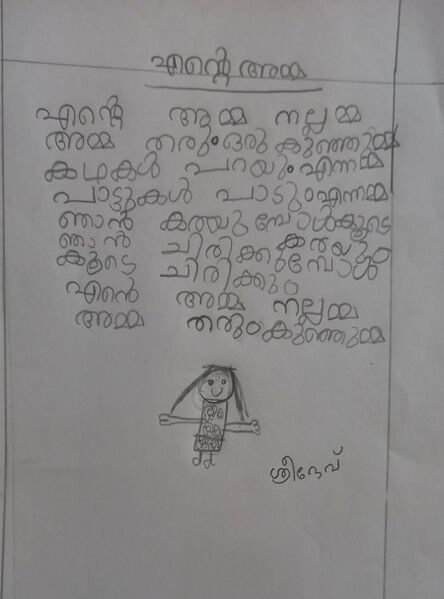 എന്റെ അമ്മ
എന്റെ അമ്മ നല്ലമ്മ
അമ്മ തരും ഒരു കുഞ്ഞുമ്മ
കഥകൾ പറയും എന്നമ്മ
പാട്ടുകൾ പാടും എന്നമ്മ
ഞാൻ കരയുമ്പോൾ കൂടെ
ഞാൻ ചിരിക്കുമ്പോൾ കരയും
കൂടെ ചിരിക്കും
എന്റെ അമ്മ നല്ലമ്മ
അമ്മ തരും കുഞ്ഞുമ്മ
ശ്രീദേവ്